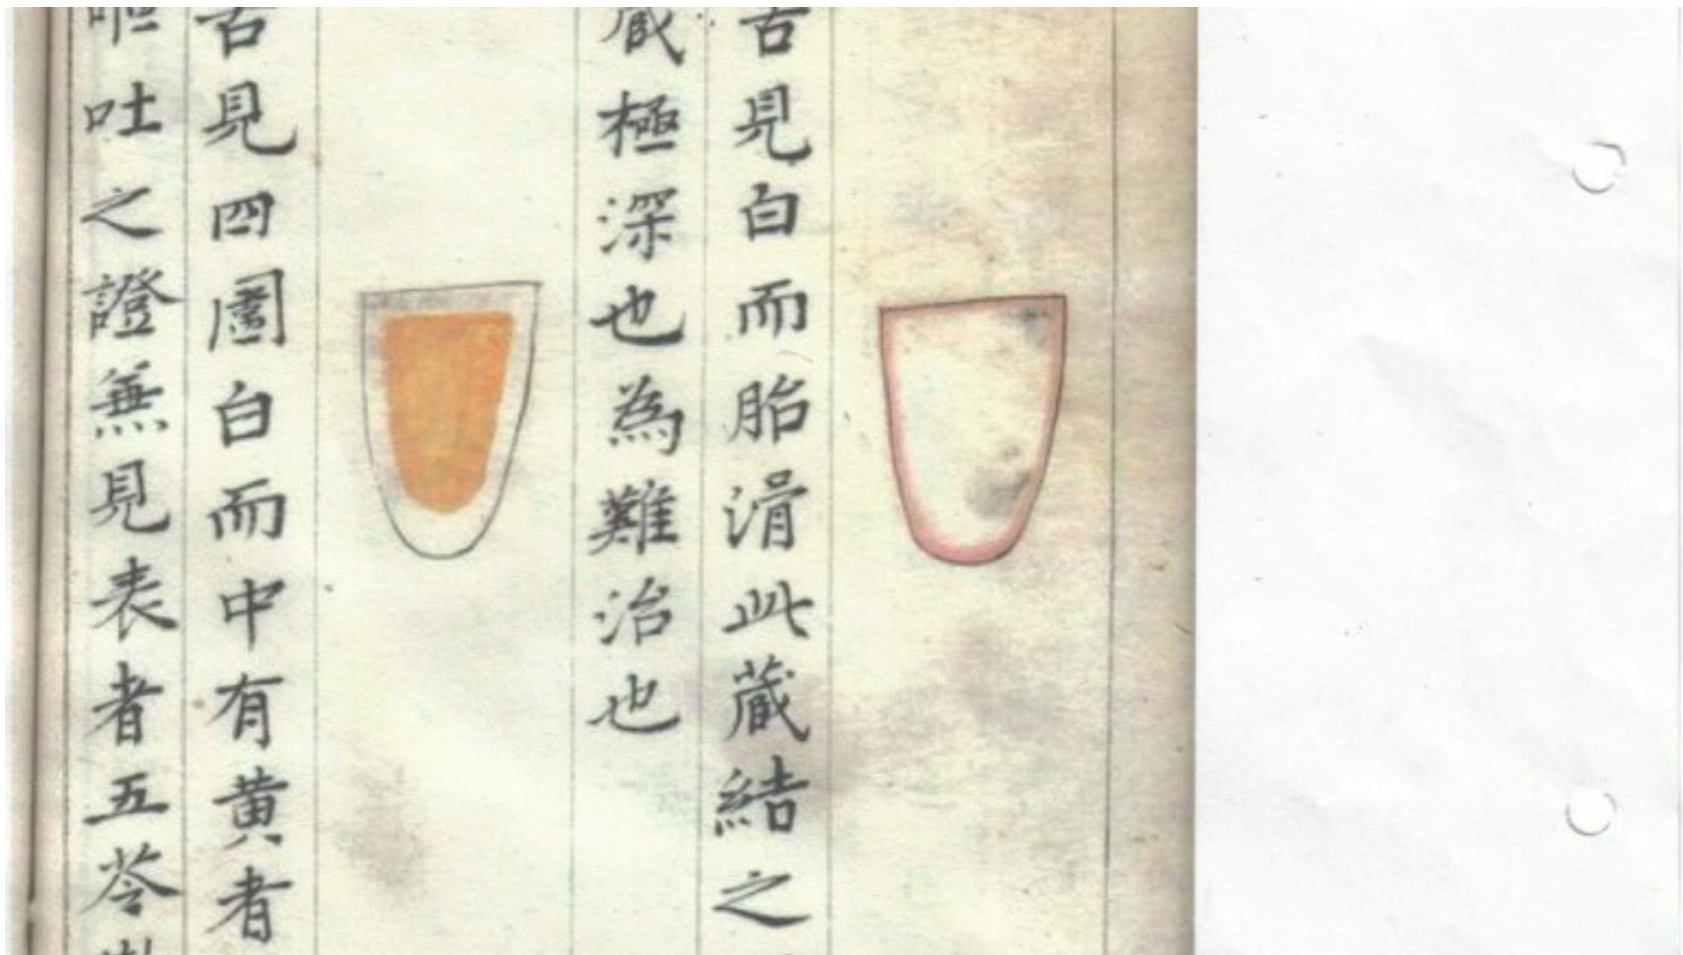 舌見白而胎滑此蔵結之
蔵極深也為難治也
舌見四圍白而中有黄者
嘔吐之證無見表者五苓